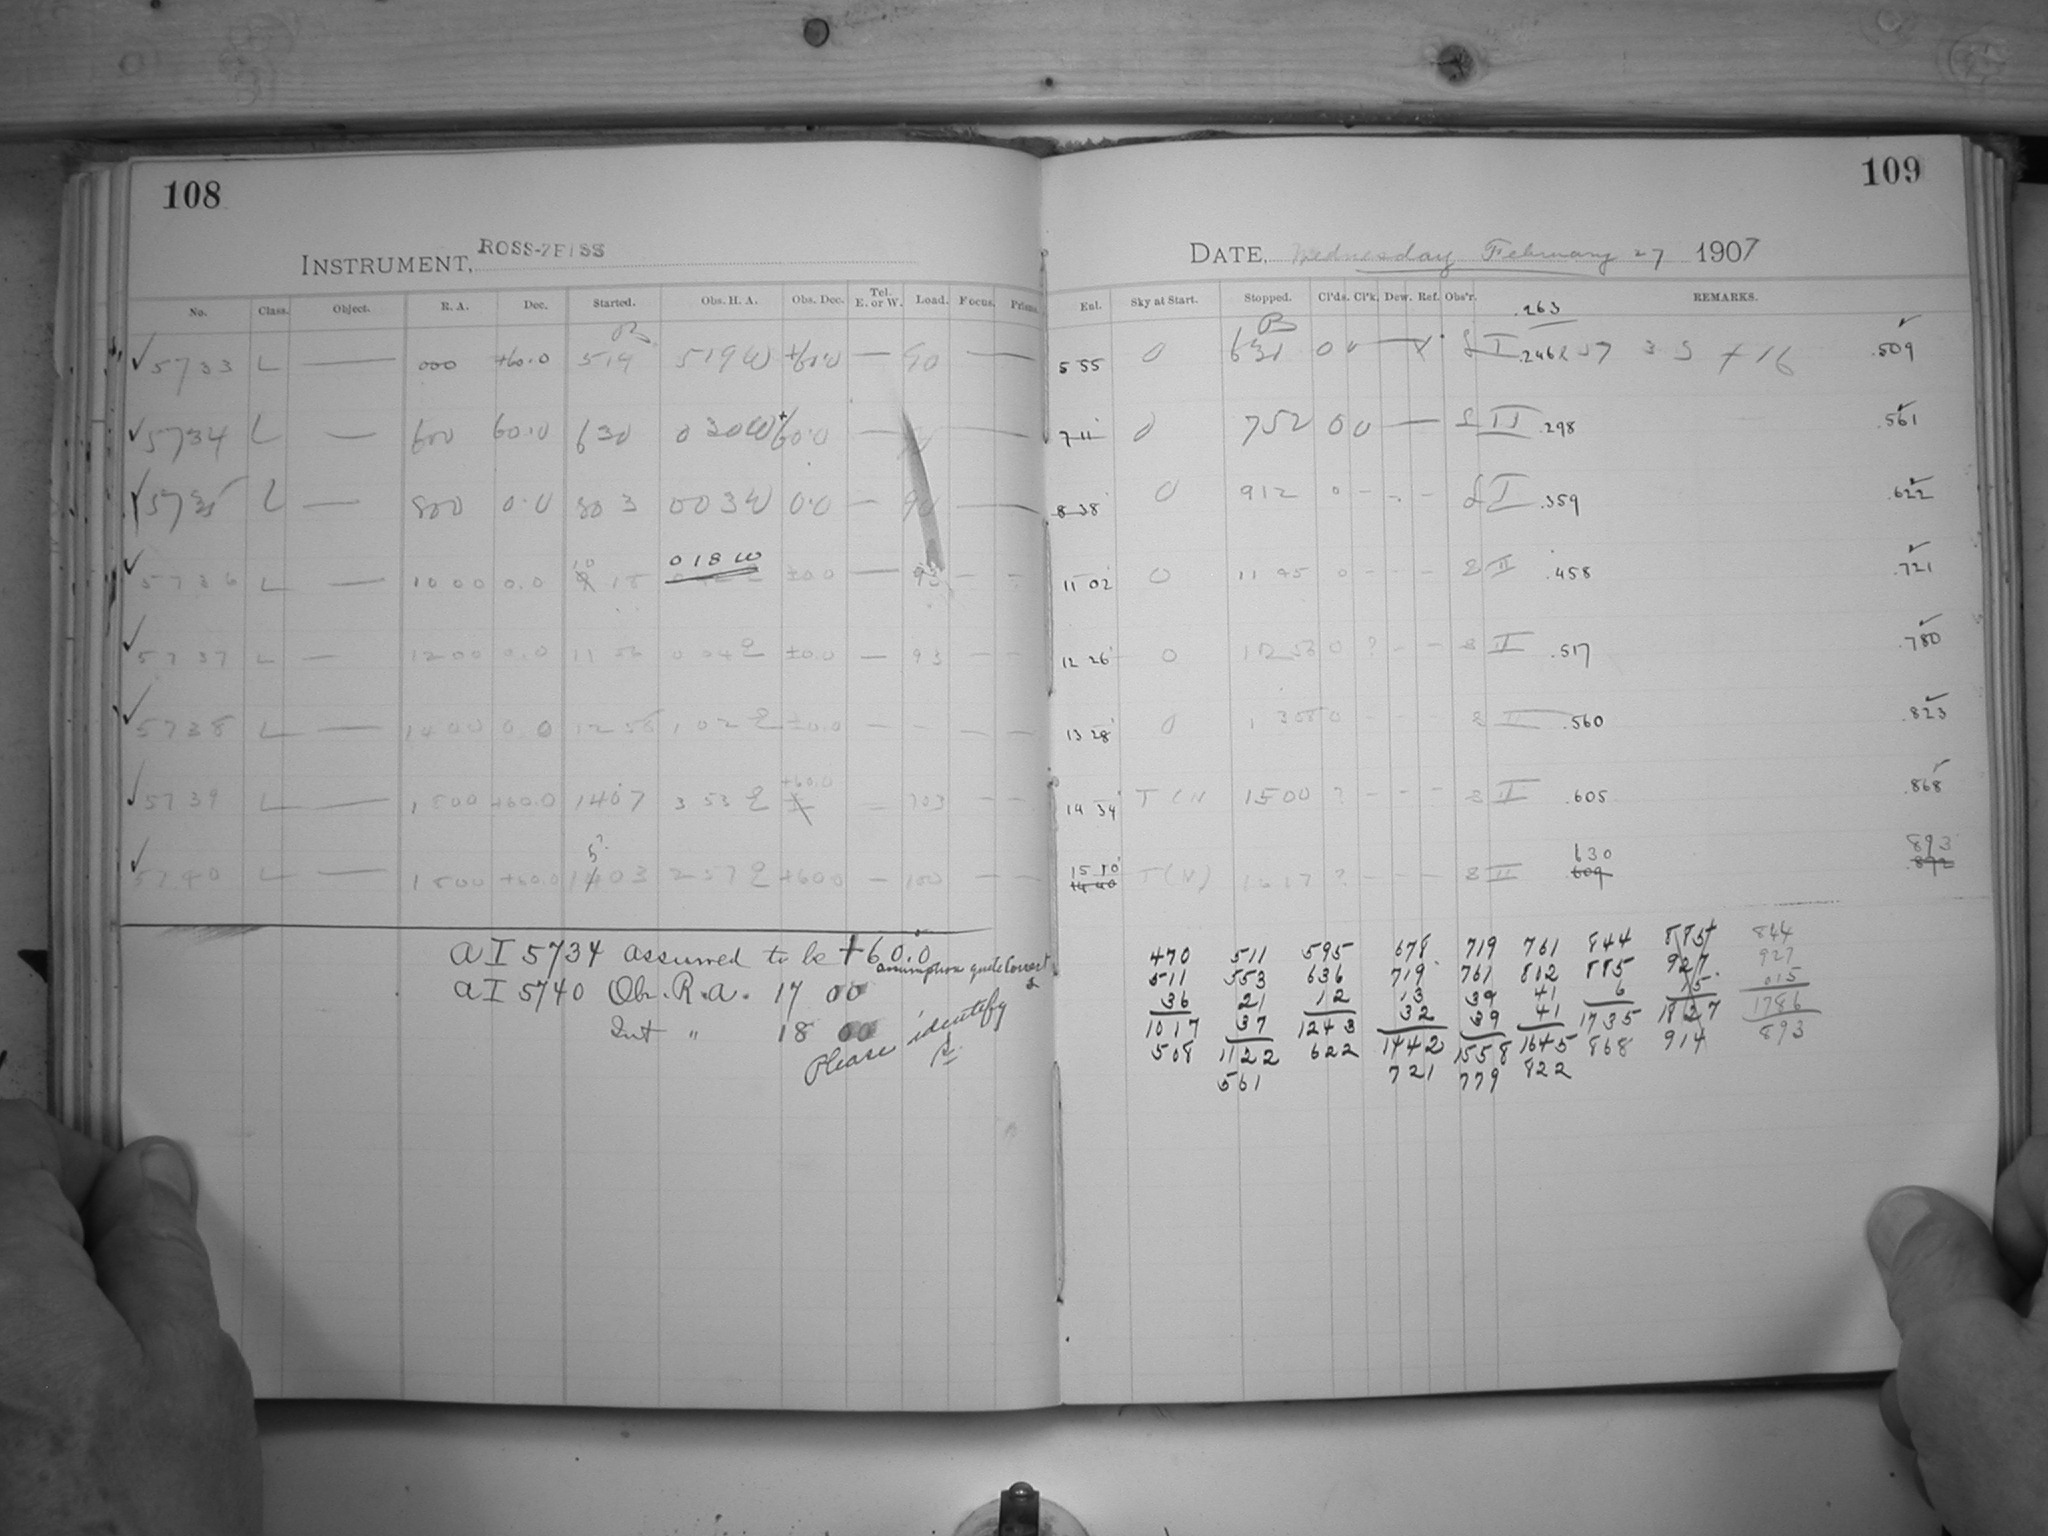 108
INSTRUMENT, ROSS-ZEISS
No. Class. Object. R. A. Dec. Started. Obs. H. A. Obs. Dec. Tel. E. or W. Load. Focus. Prisms.
5733 L — 000 +60.0 519 519 W +60.0 — 90 —
5734 L — 600 60.0 630 030 W +60.0 — —
5735 L — 800 0.0 803 003 W 0.0 — 90 —
5736 L — 1000 0.0 10 18 018 W ±0.0 — 93 — —
5737 L — 1200 0.0 11 56 0 04 E ±0.0 — 93 — —
5738 L — 1400 0.0 12 58 1 02 E ±0.0 — — — —
5739 L — 1800 +60.0 1407 3 53 E +60.0 — 103 — —
5740 L — 1800 +60.0 1403 5? 2 57 E +60.0 — 100 — —
a I 5734 assumed to be +60.0
assumption quite correct
a I 5740 Obs. R.a. 17 00
Int " 18 00
Please identify
109
DATE, Wednesday February 27 1907
Enl. Sky at Start. Stopped. Cl'ds. Cl'k. Dew. Ref. Obs'r. REMARKS.
.263
5 55 0 631 0 I .246 .509
7 11 0 752 0 0 — II .298 .561
8 38 0 912 0 – – – I .359 .622
11 02 0 11 45 0 – – – II .458 .721
12 26 0 12 56 0 ? – – II .517 .780
13 28 0 0 – – II .560 .823
14 34 T (N 1500 ? – – – II .605 .868
15 10 T (N) ? – – – II 630 893
14 40 609 892
470 511 595 678 719 761 844 885 844
511 553 636 719 761 812 885 927 927
36 21 12 13 39 41 6 15 015
1017 37 1243 32 39 41 1735 1827 1786
508 1122 622 1442 1558 1645 868 914 893
561 721 779 822